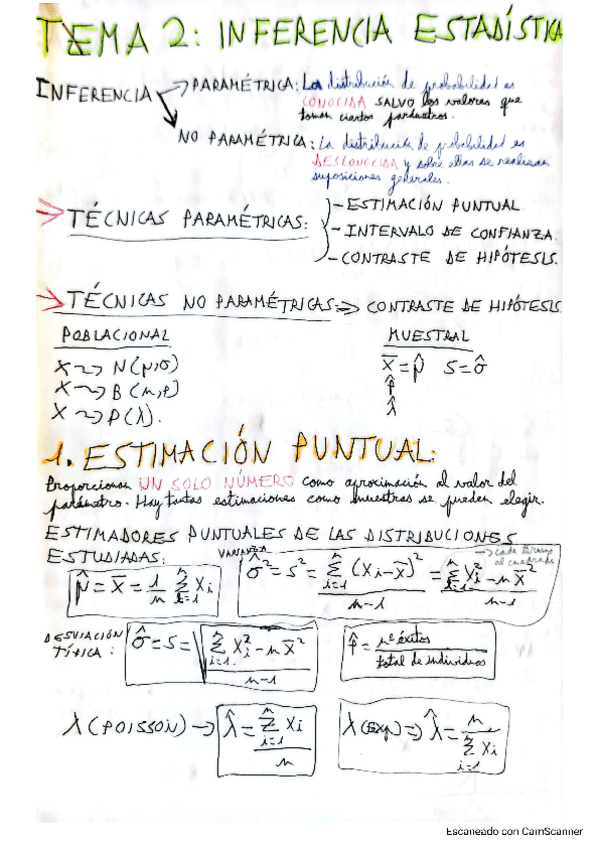 TEMA 2: INFERENCIA ESTADÍSTICA
INFERENCIA → PARAMÉTRICA: La distribución de probabilidad es
CONOCIDA SALVO los valores que
toman ciertos parámetros.
NO PARAMÉTRICA: La distribución de probabilidad es
DESCONOCIDA y sobre ellas se realizan
suposiciones generales.
→ TÉCNICAS PARAMÉTRICAS: - ESTIMACIÓN PUNTUAL
- INTERVALO DE CONFIANZA.
- CONTRASTE DE HIPÓTESIS.
→ TÉCNICAS NO PARAMÉTRICAS => CONTRASTE DE HIPÓTESIS.
POBLACIONAL MUESTRAL
X ~> N(μ,σ) x̄ = μ̂ S = σ̂
X ~> B(n,p) p̂
X ~> P(λ). λ̂
1. ESTIMACIÓN PUNTUAL:
Proporcionan UN SOLO NÚMERO como aproximación al valor del
parámetro. Hay tantas estimaciones como muestras se pueden elegir.
ESTIMADORES PUNTUALES DE LAS DISTRIBUCIONES
ESTUDIADAS: VARIANZA → cada término al cuadrado
μ̂ = x̄ = 1/n Σ(i=1, n) Xi σ̂² = S² = Σ(i=1, n) (Xi - x̄)² / n-1 = Σ(i=1, n) Xi² - n x̄² / n-1
DESVIACIÓN TÍPICA: σ̂ = S = √(Σ(i=1, n) Xi² - n x̄² / n-1) p̂ = nº éxitos / total de individuos
λ (POISSON) → λ̂ = Σ(i=1, n) Xi / n λ (Exp) => λ̂ = n / Σ(i=1, n) Xi
Escaneado con CamScanner